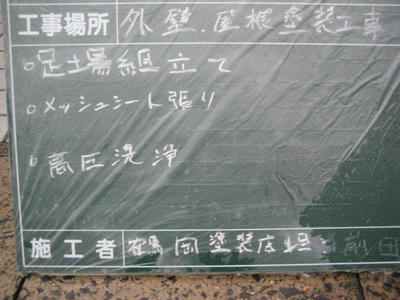 工事場所 外壁.屋根塗装工事
○足場組立て
○メッシュシート張り
○高圧洗浄
施工者 鶴岡塗装店 担当前田